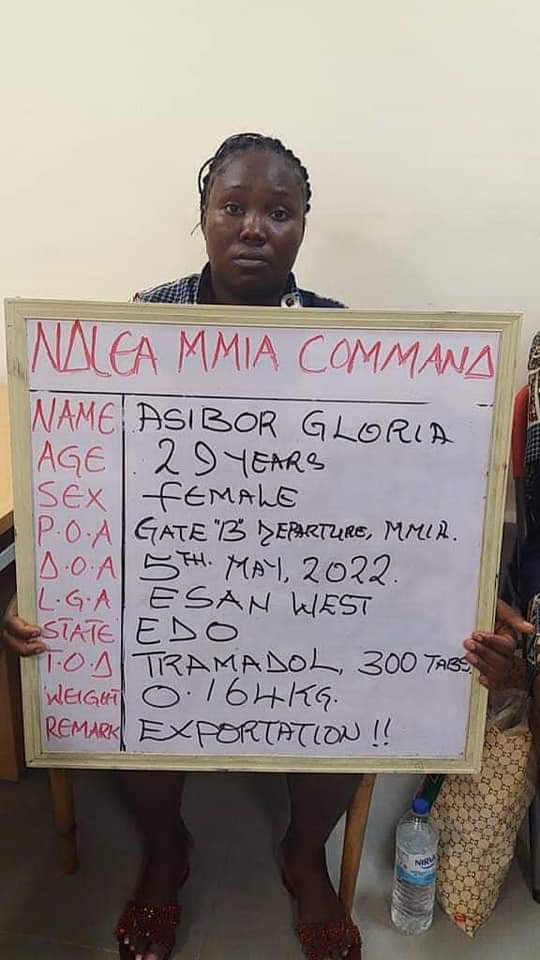 NDLEA MMIA COMMAND
NAME ASIBOR GLORIA
AGE 29 YEARS
SEX FEMALE
P.O.A GATE "B" DEPARTURE, MMIA.
D.O.A 5TH. MAY, 2022.
L.G.A ESAN WEST
STATE EDO
T.O.D TRAMADOL, 300 TABS.
WEIGHT 0.164KG.
REMARK EXPORTATION !!